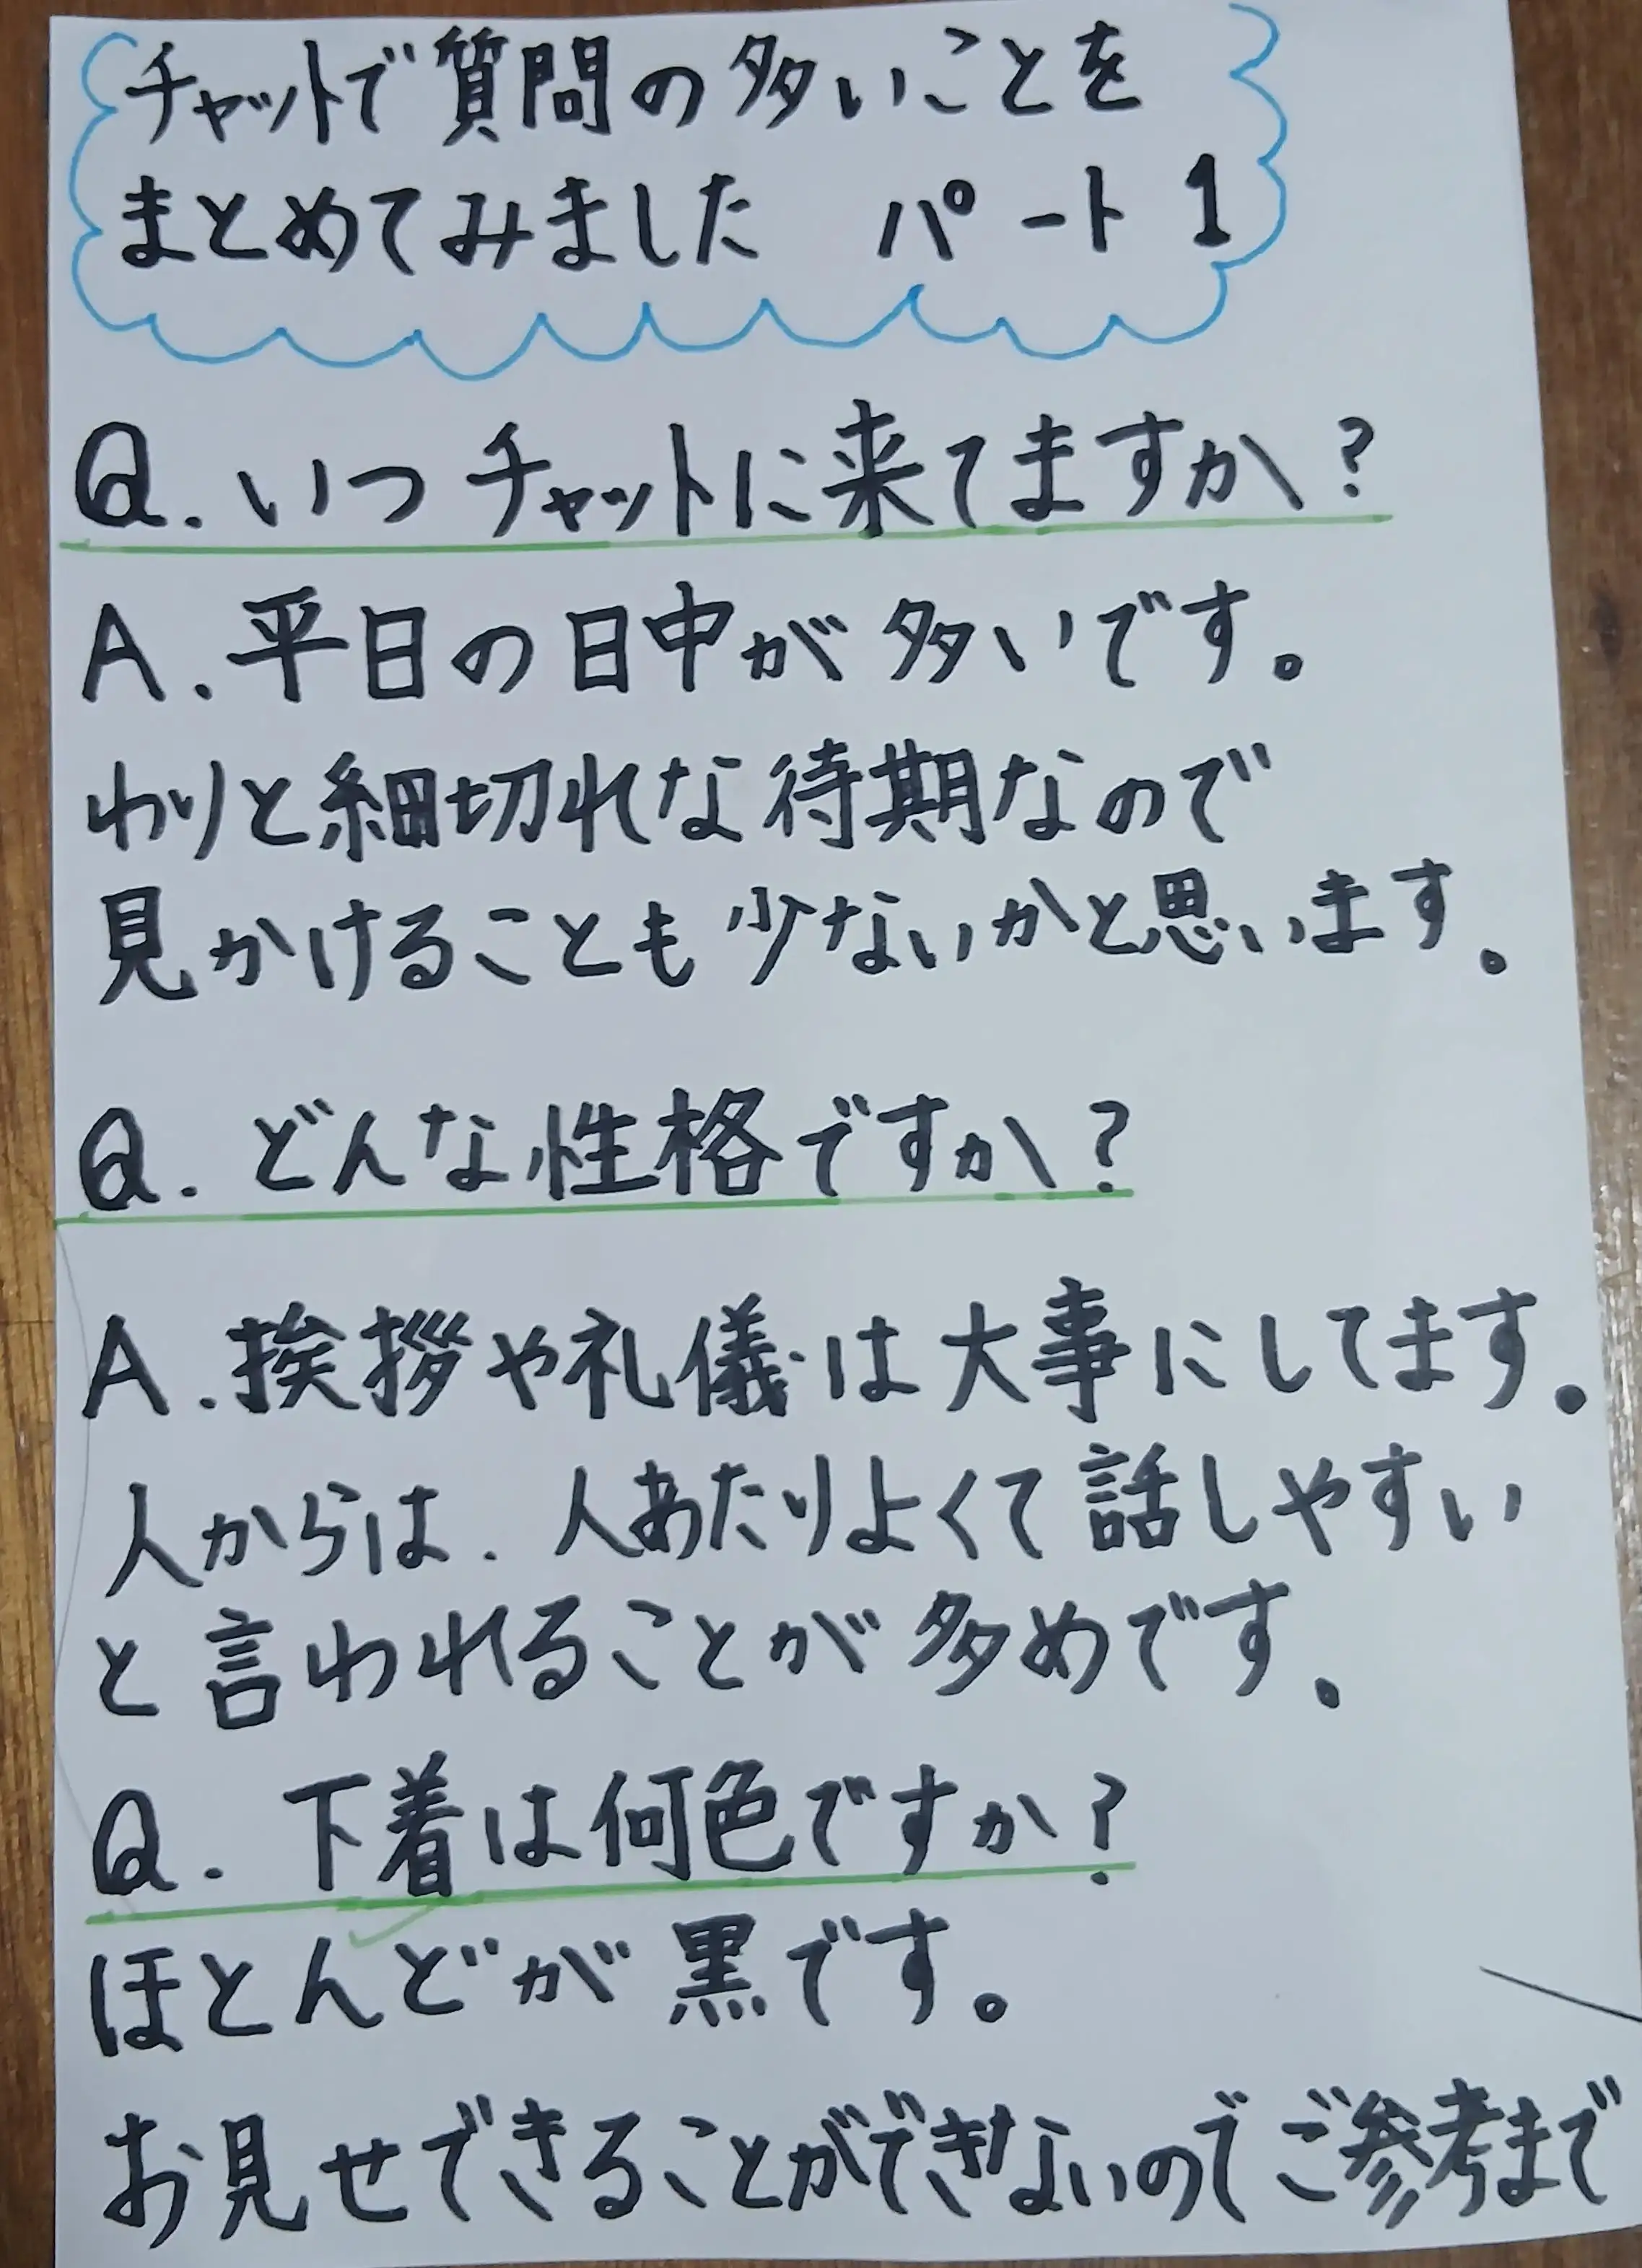 チャットで質問の多いことを
まとめてみました パート1
Q.いつチャットに来てますか?
A.平日の日中が多いです。
わりと細切れな待期なので
見かけることも少ないかと思います.
Q.どんな性格ですか?
A.挨拶や礼儀は大事にしてます.
人からは.人あたりよくて話しやすい
と言われることが多めです.
Q.下着は何色ですか?
ほとんどが黒です。
お見せできることができないのでご参考まで